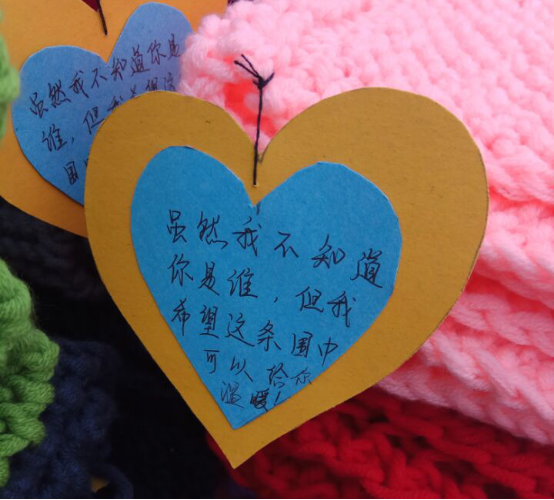 虽然我不知道你是
谁，但我
围
虽然我不知道
你是谁，但我
希望这条围巾
可以给你
温暖！